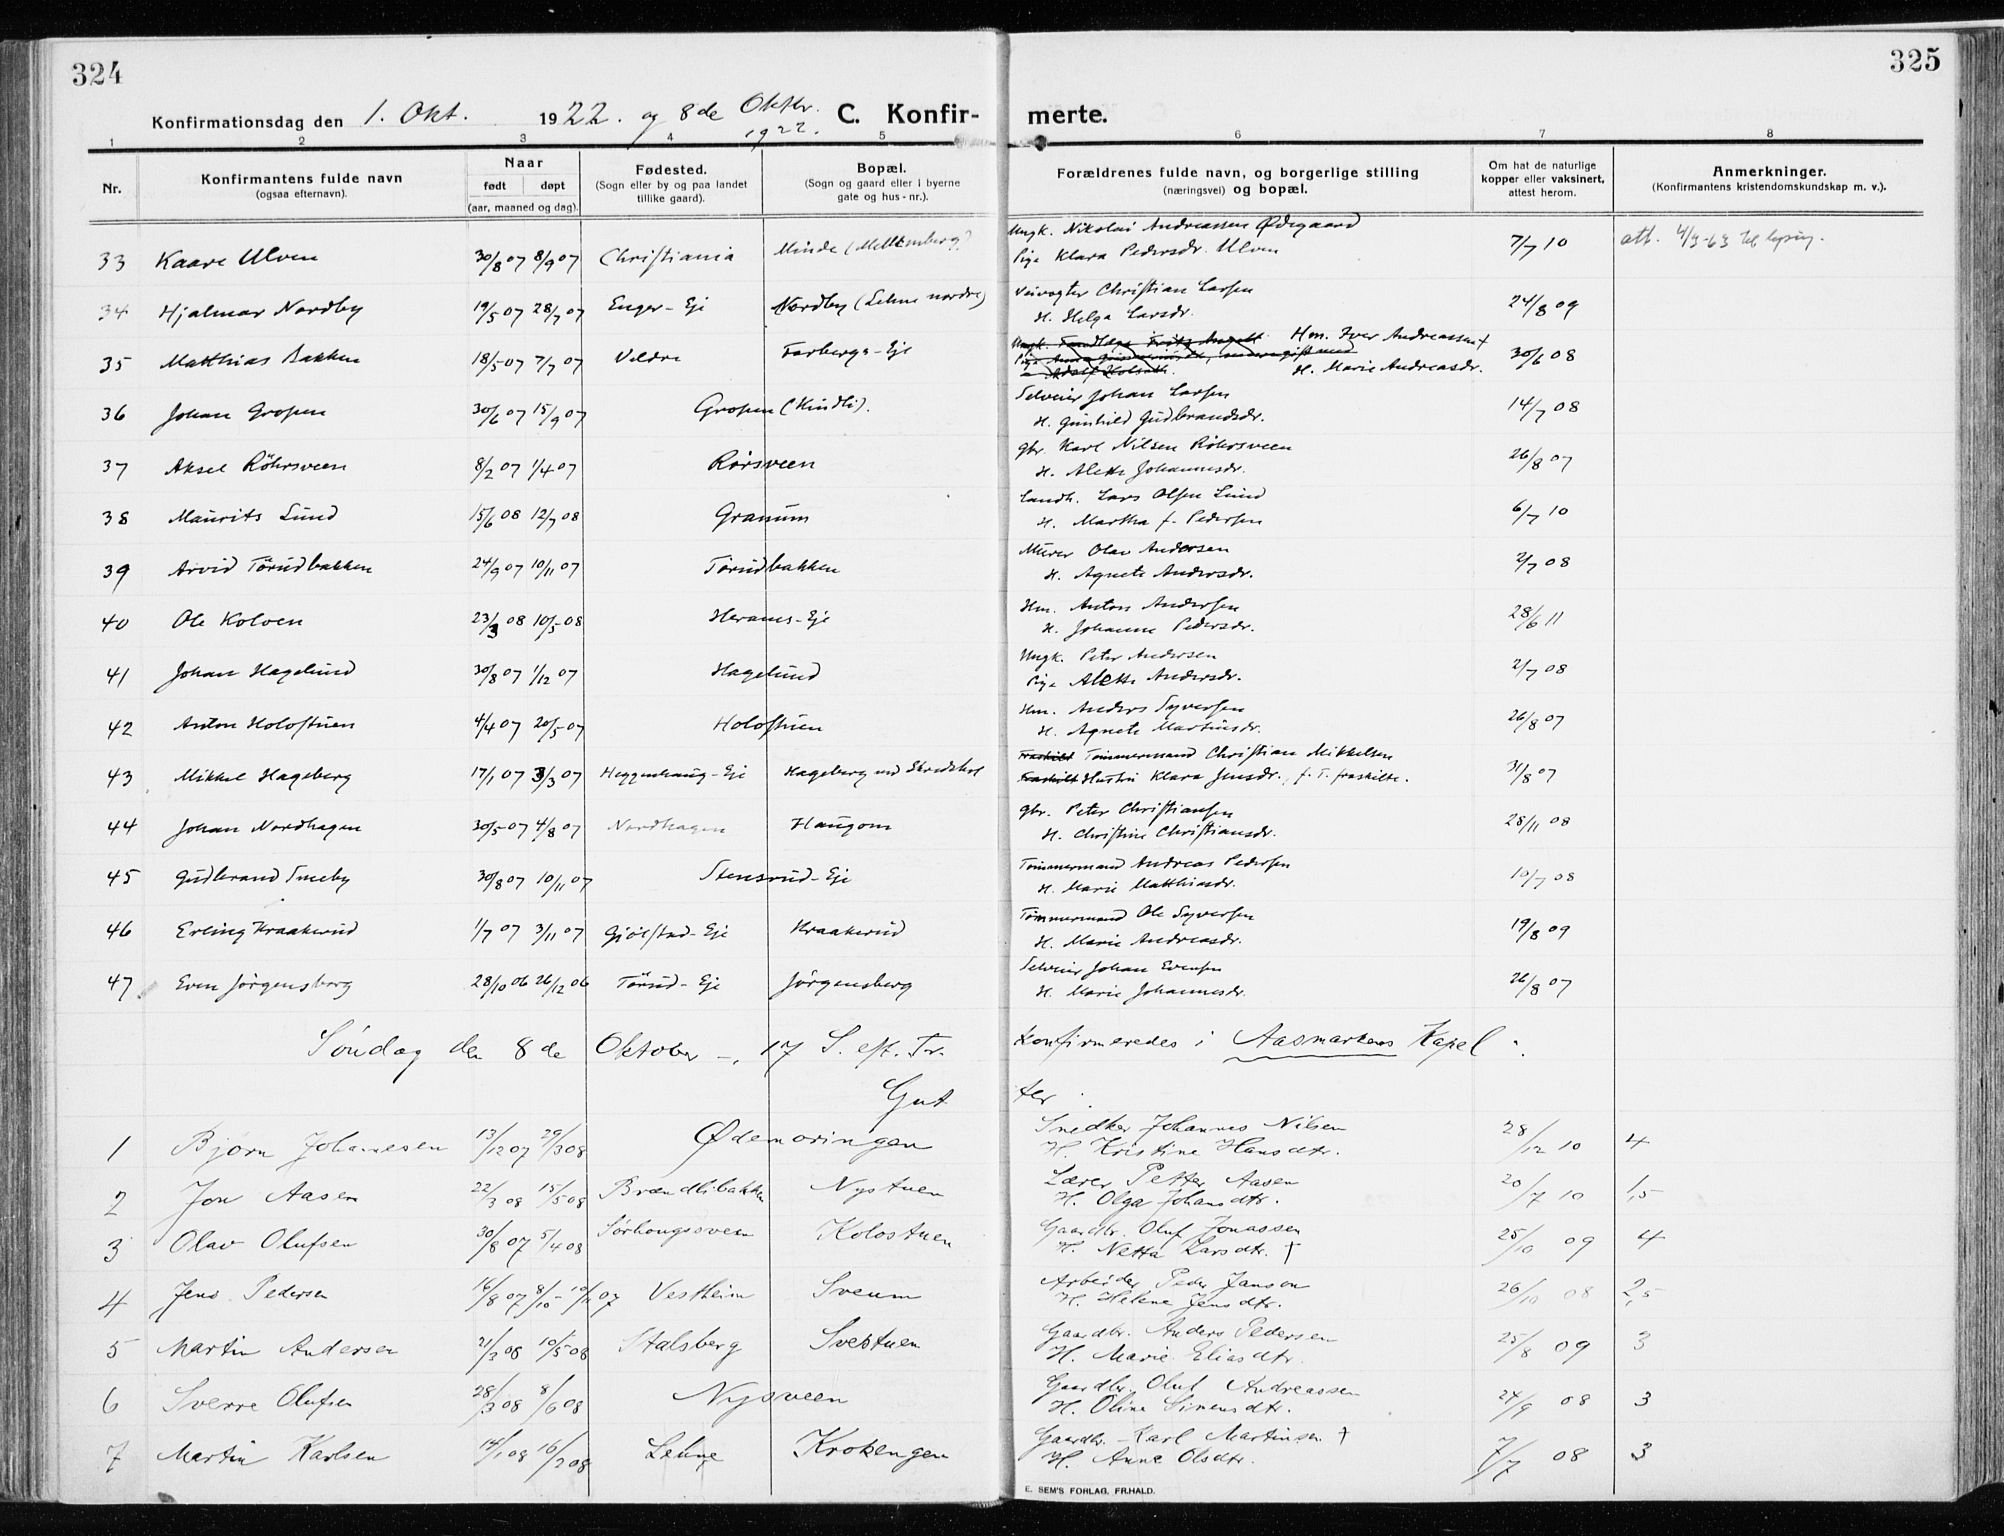 324
325
Konfirmationsdag den 1. Okt. 1922. og 8de Oktbr. 1922. C. Konfirmerte.
1 2 3 4 5 6 7 8
Nr.
Konfirmantens fulde navn (ogsaa efternavn).
Naar født døpt (aar, maaned og dag).
Fødested. (Sogn eller by og paa landet tillike gaard).
Bopæl. (Sogn og gaard eller i byerne gate og hus-nr.).
Forældrenes fulde navn, og borgerlige stilling (næringsvei) og bopæl.
Om hat de naturlige kopper eller vaksinert, attest herom.
Anmerkninger. (Konfirmantens kristendomskundskap m. v.).
33 Kaare Ulven 30/8 07 8/9 07 Christiania Minde (Mellemberg) Ungk. Nikolai Andreassen Ødegaard 7/7 10 att. 4/3-63
Pige Klara Pedersdr. Ulven
34 Hjalmar Nordby 19/5 07 28/7 07 Enger-Eje Nordby (Lehne nordre) Veivogter Christian Larsen 24/8 09
H. Helga Larsdr.
35 Matthias Bakken 18/5 07 7/7 07 Veldre Farberga-Eje Hm. Iver Andreassen † 30/6 08
H. Marie Andreasdr.
36 Johan Gropen 30/6 07 15/9 07 Gropen (Kindli). Selveier Johan Larsen 14/7 08
H. Gunhild Gudbrandsdr.
37 Aksel Röhrsveen 8/2 07 1/4 07 Rörsveen gbr. Karl Nilsen Röhrsveen 26/8 07
H. Alette Johannesdr.
38 Maurits Lund 15/6 08 12/7 08 Granum Landh. Lars Olsen Lund 6/7 10
H. Martha f. Pedersen
39 Arvid Törudbakken 24/9 07 10/11 07 Törudbakken Murer Olav Andersen 2/7 08
H. Agnete Andersdr.
40 Ole Kolven 23/3 08 10/5 08 Herams-Eje Hm. Anton Andersen 28/6 11
H. Johanne Pedersdr.
41 Johan Hagelund 30/8 07 1/12 07 Hagelund Ungk. Peter Andersen 2/7 08
Pige Alette Andersdr.
42 Anton Holostuen 4/4 07 20/5 07 Holostuen Hm. Anders Syversen 26/8 07
H. Agnete Martinusdr.
43 Mikkel Hageberg 17/1 07 3/3 07 Heggenhaug-Eje Hageberg und Skredshol Fraskilt Tømmermand Christian Mikkelsen 31/8 07
Fraskilt Hustru Klara Jensdr., f. T. fraskilte.
44 Johan Nordhagen 30/5 07 4/8 07 Nordhagen Haugom gbr. Peter Christiansen 28/11 08
H. Christine Christiansdr.
45 Gudbrand Smeby 30/8 07 10/11 07 Stensrud-Eje Tømmermand Andreas Pedersen 10/7 08
H. Marie Matthiasdr.
46 Erling Kraakerud 1/7 07 3/11 07 Gjölstad-Eje Kraakerud Tømmermand Ole Syversen 19/8 09
H. Marie Andreasdr.
47 Even Jörgensberg 28/10 06 26/12 06 Törud-Eje Jörgensberg Selveier Johan Evensen 26/8 07
H. Marie Johannesdr.
Søndag den 8de Oktober -, 17 S. eft. Tr. konfirmeredes i Aasmarkens Kapel :
Gutter
1 Bjørn Johannesen 13/12 07 29/3 08 Ødemoringen Snedker Johannes Nilsen 28/12 10 4
H. Kristine Hansdtr.
2 Jon Aasen 22/3 08 15/5 08 Brændlibakken Nystuen Lærer Petter Aasen 20/7 10 1,5
H. Olga Johansdtr.
3 Olav Olufsen 30/8 07 5/4 08 Sørhougssveen Kolostuen Gaardbr. Oluf Jonassen 25/10 09 4
H. Netta Larsdtr. †
4 Jens Pedersen 16/8 07 8/10 - 10/11 07 Vestheim Sveum Arbeider Peder Janson 26/10 08 2,5
H. Helene Jensdtr.
5 Martin Andersen 21/3 08 10/5 08 Stalsberg Svestuen Gaardbr. Anders Pedersen 25/8 09 3
H. Marie Eliasdtr.
6 Sverre Olufsen 28/3 08 8/6 08 Nysveen Gaardbr. Oluf Andreassen 24/9 08 3
H. Oline Simensdtr.
7 Martin Karlsen 14/1 08 16/2 08 Lehne Krokengen Gaardbr. Karl Martinsen † 7/7 08 3
H. Anne Olsdtr.
E. SEM'S FORLAG, FR.HALD.